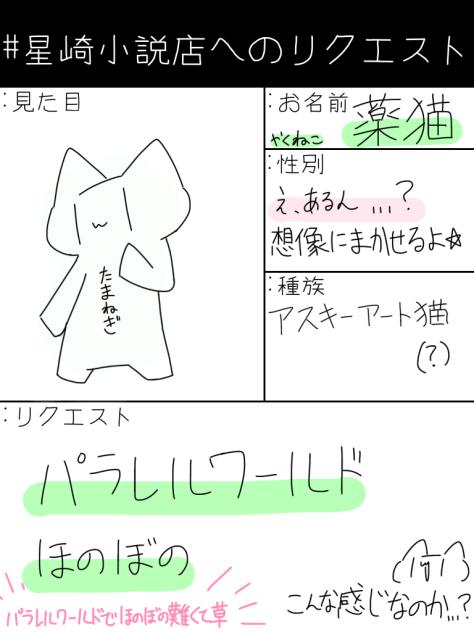 #星崎小説店へのリクエスト
:見た目
たまねぎ
:お名前
やくねこ
薬猫
:性別
え、あるん...?
想像にまかせるよ☆
:種族
アスキーアート猫
(?)
:リクエスト
パラレルワールド
ほのぼの
パラレルワールドでほのぼの難くて草
こんな感じなのか...?